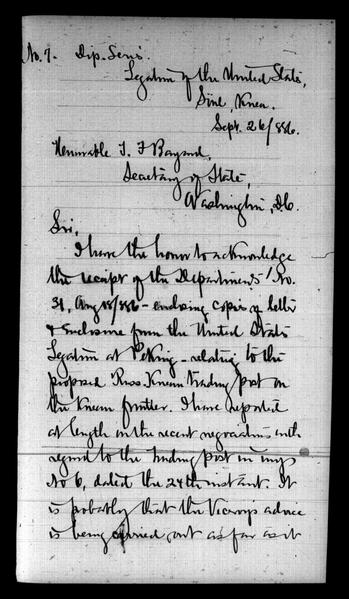 No. 7. Dip. Series.
Legation of the United States,
Söul, Korea.
Sept. 26/886.
Honorable T. F. Bayard,
Secretary of State,
Washington, D.C.
Sir,
I have the honor to acknowledge
the receipt of the Department's No.
31, Aug 18/886 - enclosing copies of letter
& enclosure from the United States
Legation at Peking - relating to the
proposed Russ. Korean trading post on
the Korean frontier. I have reported
at length on the recent negociation with
regard to the trading post in my
No 6, dated the 24th instant. It
is probably that the Viceroy's advice
is being carried out as far as it